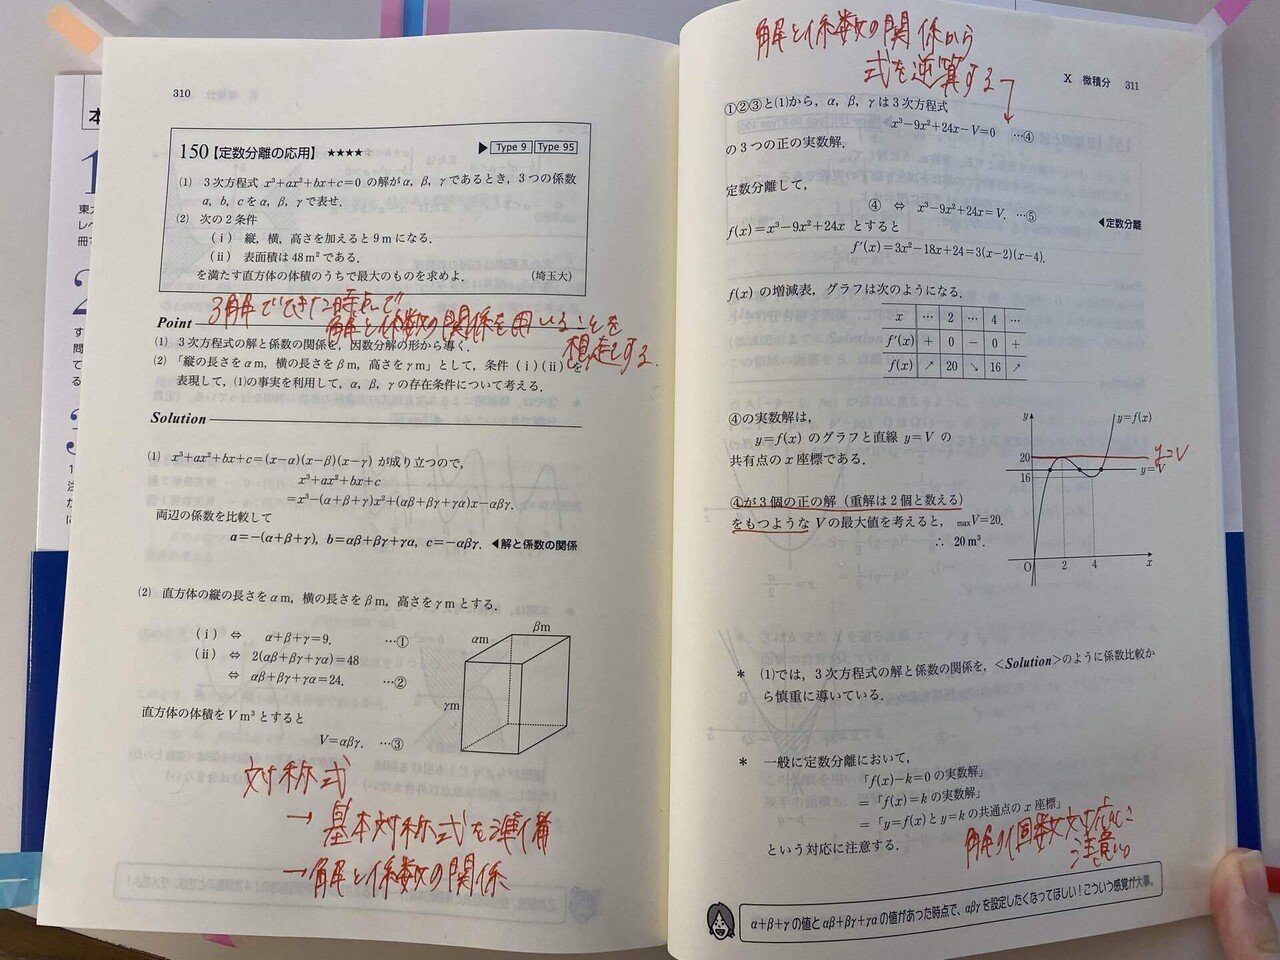 310
150【定数分離の応用】 ★★★★ ▶ Type 9 Type 95
(1) 3次方程式 x³+ax²+bx+c=0 の解がα, β, γであるとき, 3つの係数
a, b, cをα, β, γで表せ.
(2) 次の2条件
(i) 縦, 横, 高さを加えると9mになる.
(ii) 表面積は48m²である.
を満たす直方体の体積のうちで最大のものを求めよ. (埼玉大)
3解でできた時点で
解と係数の関係を用いることを
想定する.
Point
(1) 3次方程式の解と係数の関係を, 因数分解の形から導く.
(2) 「縦の長さをαm, 横の長さをβm, 高さをγm」として, 条件(i)(ii)を
表現して, (1)の事実を利用して, α, β, γの存在条件について考える.
Solution
(1) x³+ax²+bx+c=(x−α)(x−β)(x−γ) が成り立つので,
x³+ax²+bx+c
=x³−(α+β+γ)x²+(αβ+βγ+γα)x−αβγ.
両辺の係数を比較して
a=−(α+β+γ), b=αβ+βγ+γα, c=−αβγ. ◀解と係数の関係
(2) 直方体の縦の長さをαm, 横の長さをβm, 高さをγmとする.
(i) ⇔ α+β+γ=9. …①
(ii) ⇔ 2(αβ+βγ+γα)=48
⇔ αβ+βγ+γα=24. …②
直方体の体積をVm³とすると
V=αβγ. …③
αm
βm
γm
対称式
→ 基本対称式を準備
→ 解と係数の関係
解と係数の関係から
式を逆算する
X 微積分 311
①②③と(1)から, α, β, γは3次方程式
x³−9x²+24x−V=0 …④
の3つの正の実数解.
定数分離して,
④ ⇔ x³−9x²+24x=V. …⑤
◀定数分離
f(x)=x³−9x²+24x とすると
f′(x)=3x²−18x+24=3(x−2)(x−4).
f(x)の増減表, グラフは次のようになる.
x … 2 … 4 …
f′(x) + 0 − 0 +
f(x) ↗ 20 ↘ 16 ↗
④の実数解は,
y=f(x) のグラフと直線 y=V の
共有点のx座標である.
④が3個の正の解(重解は2個と数える)
をもつような Vの最大値を考えると, maxV=20.
∴ 20m³.
y
y=f(x)
y=V
20
y=V
16
O
2
4
x
* (1)では, 3次方程式の解と係数の関係を, <Solution>のように係数比較か
ら慎重に導いている.
* 一般に定数分離において,
「f(x)−k=0の実数解」
=「f(x)=kの実数解」
=「y=f(x)とy=kの共通点のx座標」
という対応に注意する.
解の個数対応に
注意い
α+β+γの値とαβ+βγ+γαの値があった時点で、αβγを設定したくなってほしい！こういう感覚が大事。